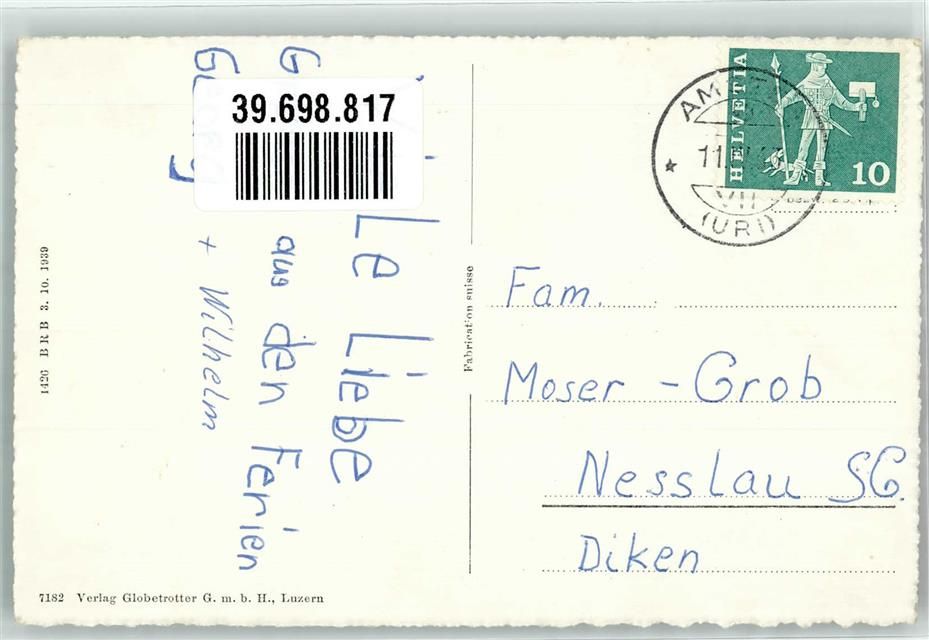 39.698.817
Le Liebe
G
aus den Ferien
+ Wilhelm
1426 BRB 3. 10. 1939
7182 Verlag Globetrotter G. m. b. H., Luzern
Fabrication suisse
HELVETIA
10
(URI)
Fam.
Moser - Grob
Nesslau SG.
Diken